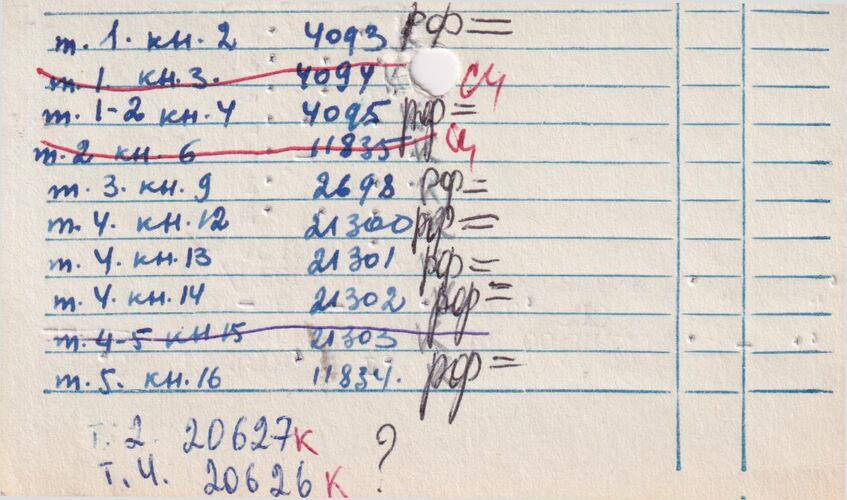 т. 1. кн. 2 4093 рф=
т. 1 кн. 3. 4094 К СЧ
т. 1-2 кн. 4 4095 рф=
т. 2 кн. 6 11835 СЧ
т. 3. кн. 9 2698 рф=
т. 4. кн. 12 21300 рф=
т. 4. кн. 13 21301 рф=
т. 4. кн. 14 21302 рф=
т. 4-5 кн 15 21303 К
т. 5. кн. 16 11834. рф=
т. 2. 20627к ?
т. 4. 20626 к